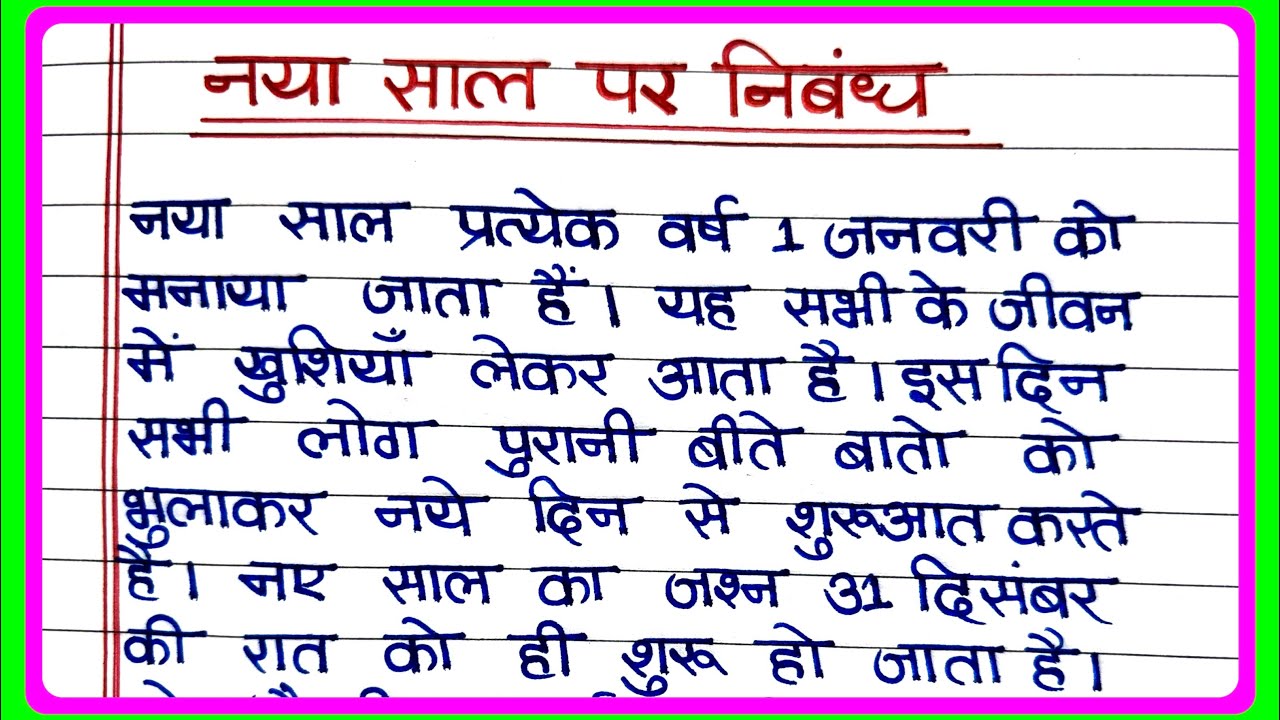 नया साल पर निबंध
नया साल प्रत्येक वर्ष 1 जनवरी को
मनाया जाता हैं। यह सभी के जीवन
में खुशियाँ लेकर आता है। इस दिन
सभी लोग पुरानी बीते बातो को
भुलाकर नये दिन से शुरूआत करते
है। नए साल का जश्न 31 दिसंबर
की रात को ही शुरू हो जाता है।